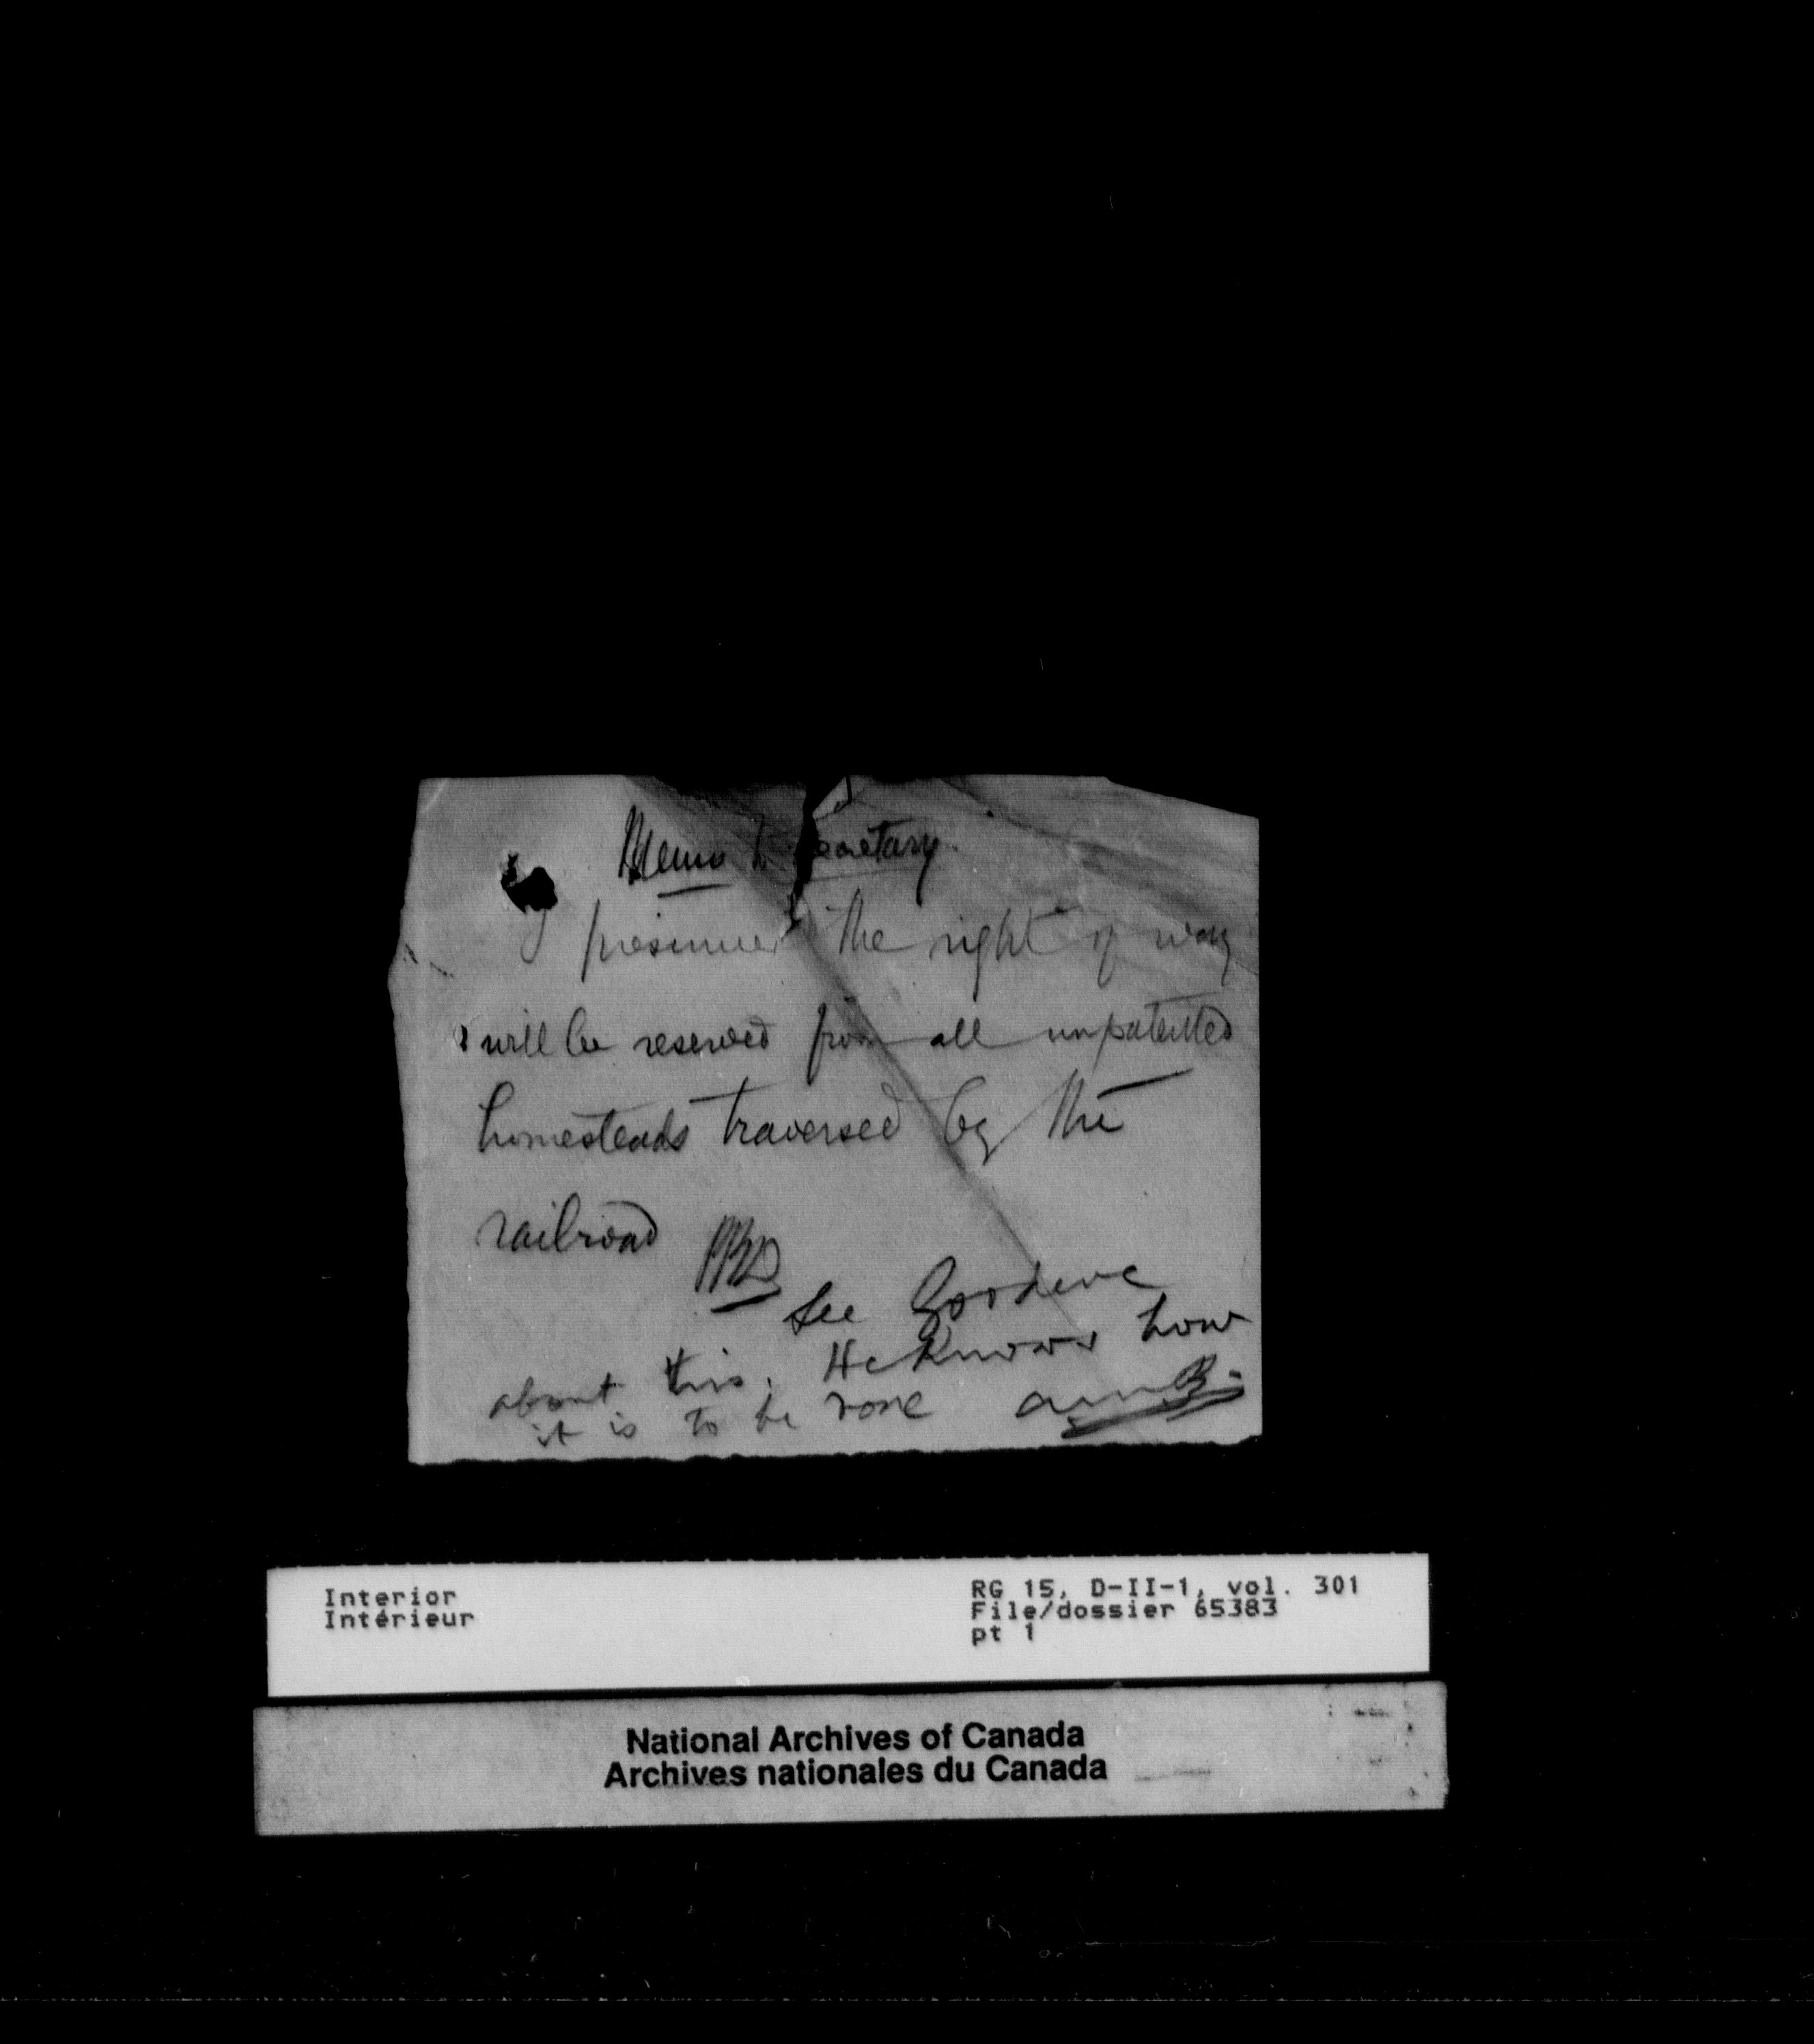 Memo to Secretary.
I presume the right of way
will be reserved from all unpatented
homesteads traversed by the
railroad
See Goodeve
about this. He knows how
it is to be done
Interior
Intérieur
RG 15, D-II-1, vol. 301
File/dossier 65383
pt 1
National Archives of Canada
Archives nationales du Canada